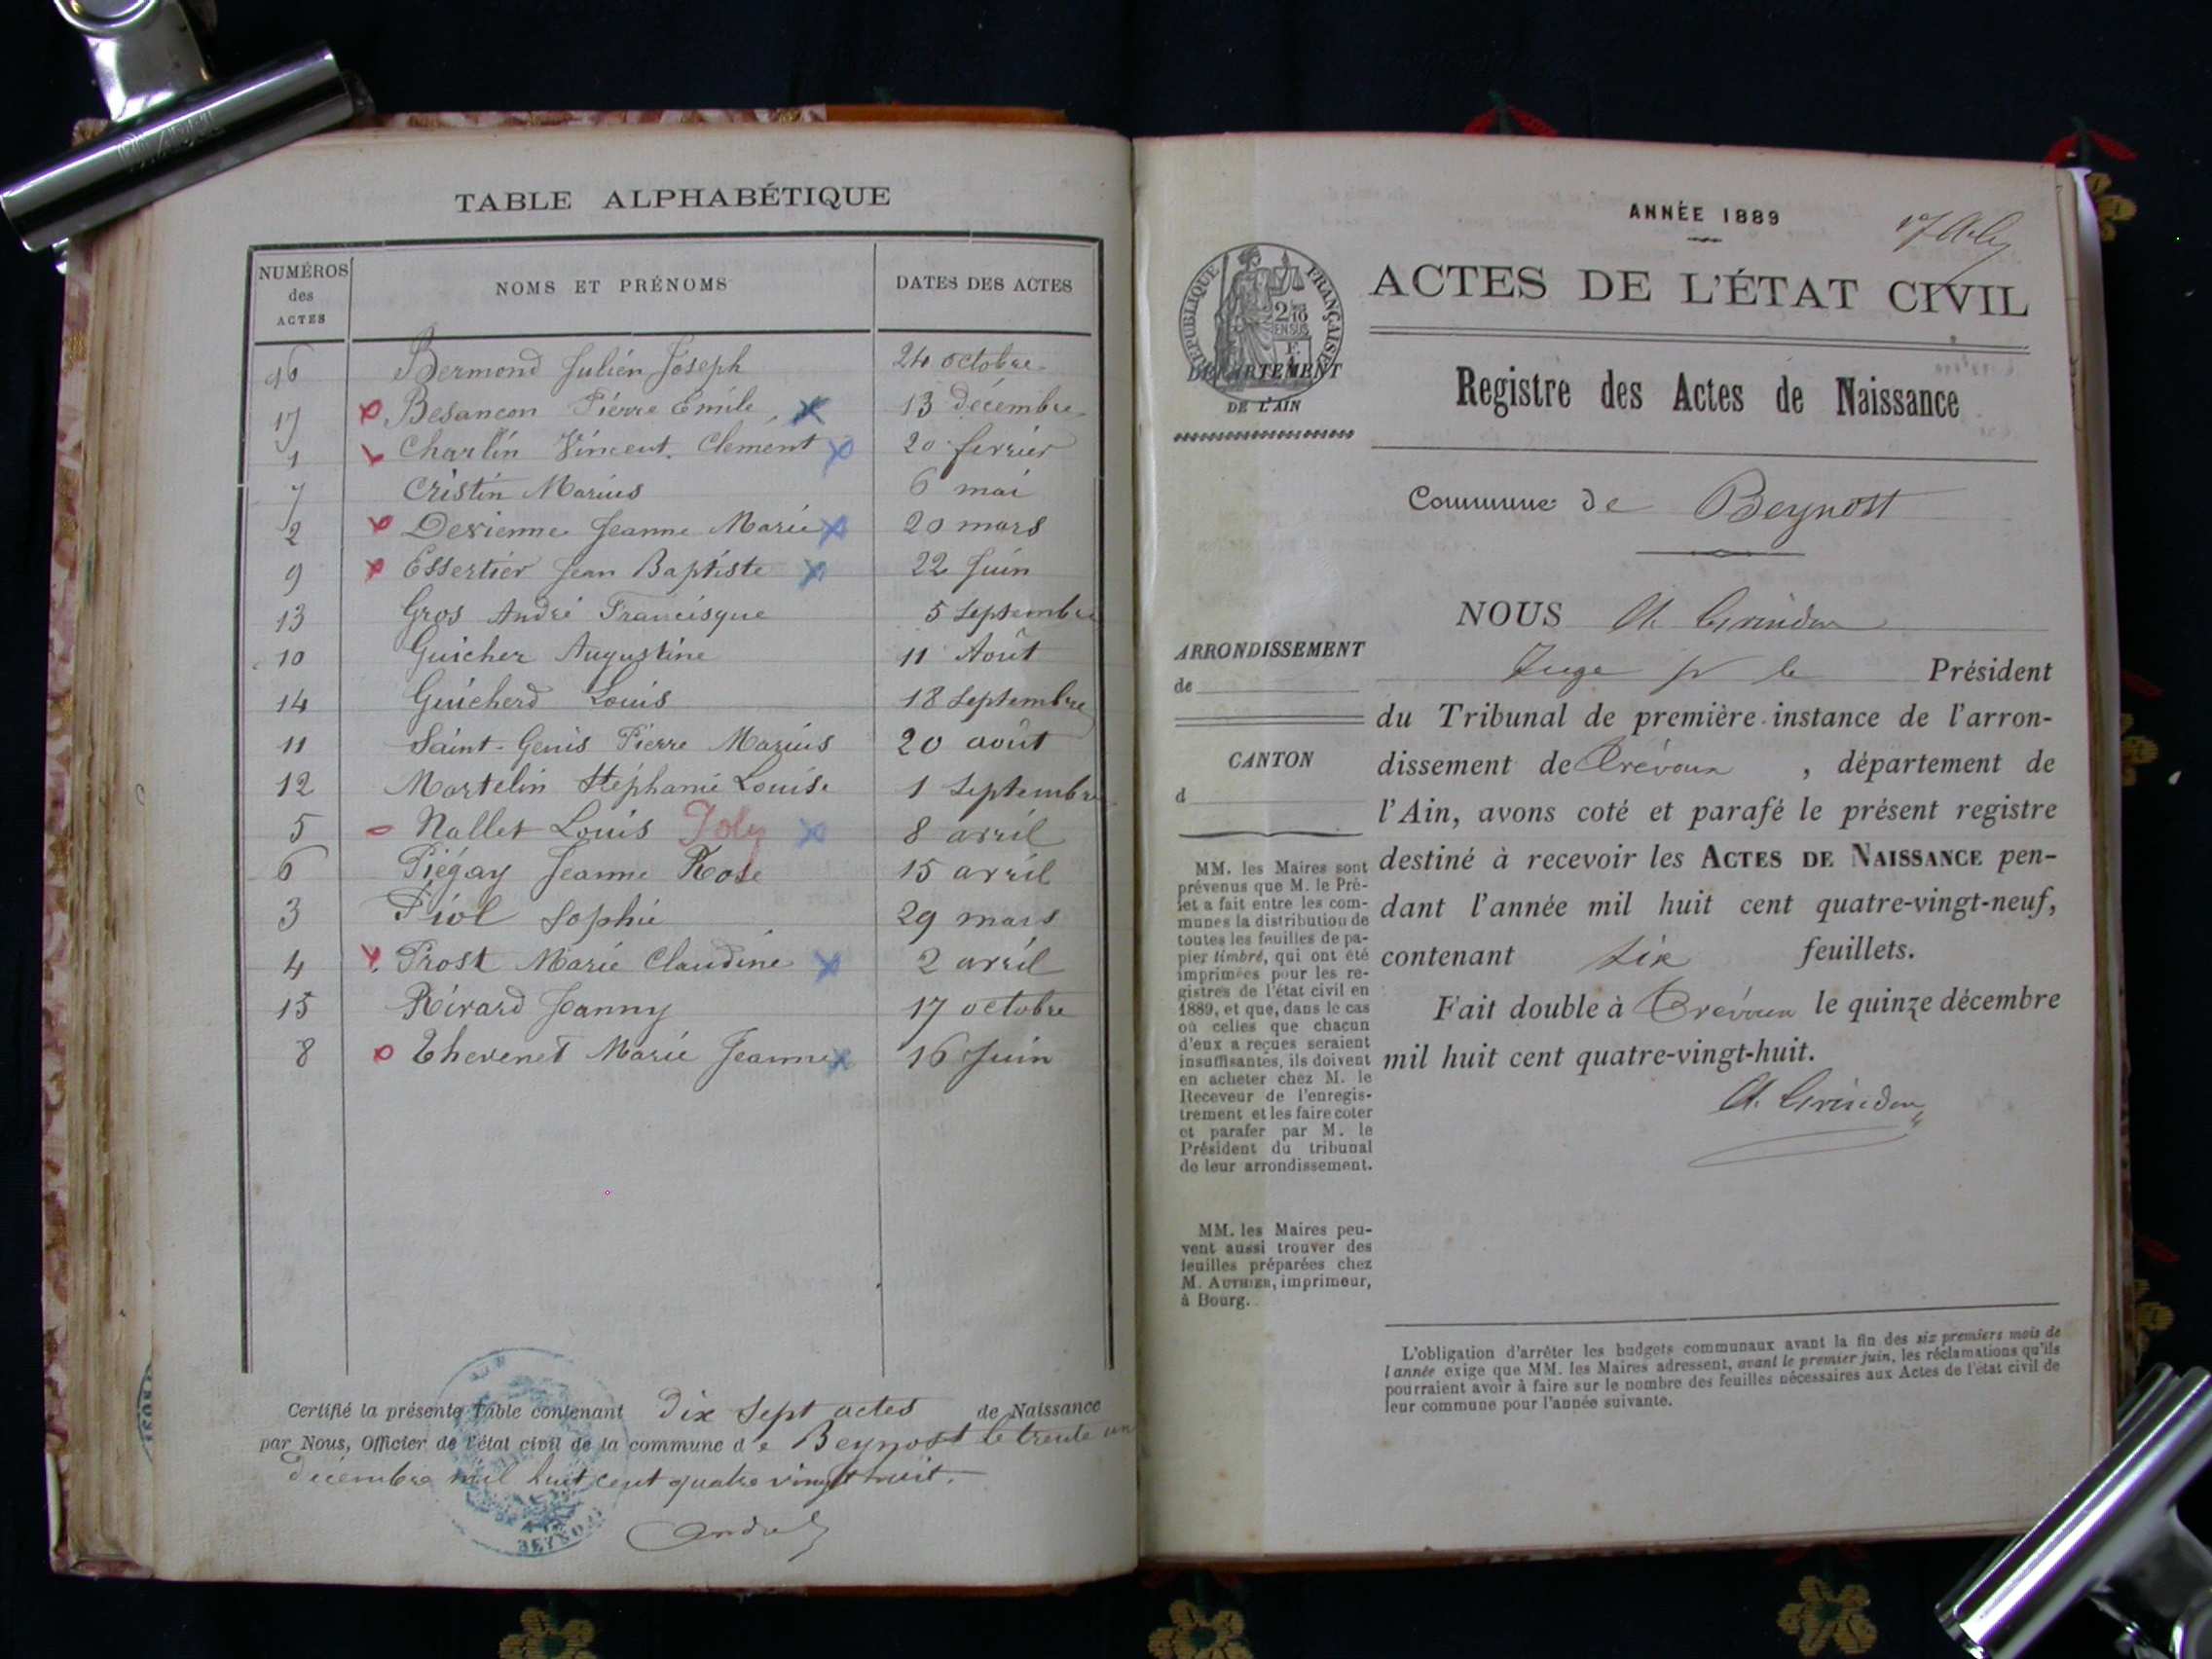 TABLE ALPHABÉTIQUE
NUMÉROS des ACTES NOMS ET PRÉNOMS DATES DES ACTES
16 Bermond Julien Joseph 24 octobre
17 Besancon Pierre Emile 13 décembre
1 Charlin Vincent Clément 20 fevrier
7 Cristin Marius 6 mai
2 Devienne Jeanne Marie 20 mars
9 Essertier Jean Baptiste 22 Juin
13 Gros André Francisque 5 Septembre
10 Guicher Augustine 11 Août
14 Guicherd Louis 18 Septembre
11 Saint-Genis Pierre Marius 20 août
12 Martelin Stéphanie Louise 1 Septembre
5 Nallet Louis Joly 8 avril
6 Piégay Jeanne Rose 15 avril
3 Piol Sophie 29 mars
4 Prost Marie Claudine 2 avril
15 Rivard Fanny 17 octobre
8 Thevenet Marie Jeanne 16 Juin
Certifié la présente Table contenant Dix Sept actes de Naissance
par Nous, Officier de l'état civil de la commune de Beynost le trente un
Décembre mil huit cent quatre vingt huit.
BEYNOST
ANNÉE 1889
ACTES DE L'ÉTAT CIVIL
RÉPUBLIQUE FRANÇAISE
2/10 EN SUS
DÉPARTEMENT
DE L'AIN
Registre des Actes de Naissance
Commune de Beynost
NOUS A. Grindon
Juge pr le Président
du Tribunal de première instance de l'arron-
dissement de Trévoux, département de
l'Ain, avons coté et parafé le présent registre
destiné à recevoir les ACTES DE NAISSANCE pen-
dant l'année mil huit cent quatre-vingt-neuf,
contenant six feuillets.
Fait double à Trévoux le quinze décembre
mil huit cent quatre-vingt-huit.
A. Grindon
ARRONDISSEMENT
de
CANTON
d
MM. les Maires sont
prévenus que M. le Pré-
fet a fait entre les com-
munes la distribution de
toutes les feuilles de pa-
pier timbré, qui ont été
imprimées pour les re-
gistres de l'état civil en
1889, et que, dans le cas
où celles que chacun
d'eux a reçues seraient
insuffisantes, ils doivent
en acheter chez M. le
Receveur de l'enregis-
trement et les faire coter
et parafer par M. le
Président du tribunal
de leur arrondissement.
MM. les Maires peu-
vent aussi trouver des
feuilles préparées chez
M. AUTHIER, imprimeur,
à Bourg.
L'obligation d'arrêter les budgets communaux avant la fin des six premiers mois de
l'année exige que MM. les Maires adressent, avant le premier juin, les réclamations qu'ils
pourraient avoir à faire sur le nombre des feuilles nécessaires aux Actes de l'état civil de
leur commune pour l'année suivante.